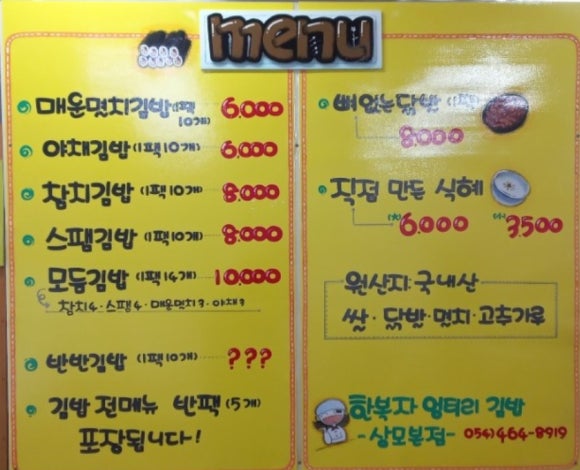 menu
매운멸치김밥 (1팩 10개) 6.000
야채김밥 (1팩 10개) 6.000
참치김밥 (1팩 10개) 8.000
스팸김밥 (1팩 10개) 8.000
모듬김밥 (1팩 14개) 10.000
참치4 · 스팸4 · 매운멸치3 · 야채3
반반김밥 (1팩 10개) ???
김밥 전메뉴 반팩 (5개)
포장됩니다!
뼈없는닭발 (1팩)
8.000
직접 만든 식혜
(大) 6.000 (小) 3.500
원산지: 국내산
쌀 · 닭발 · 멸치 · 고추가루
한복자 엉터리 김밥
-상모본점- 054) 464-8919